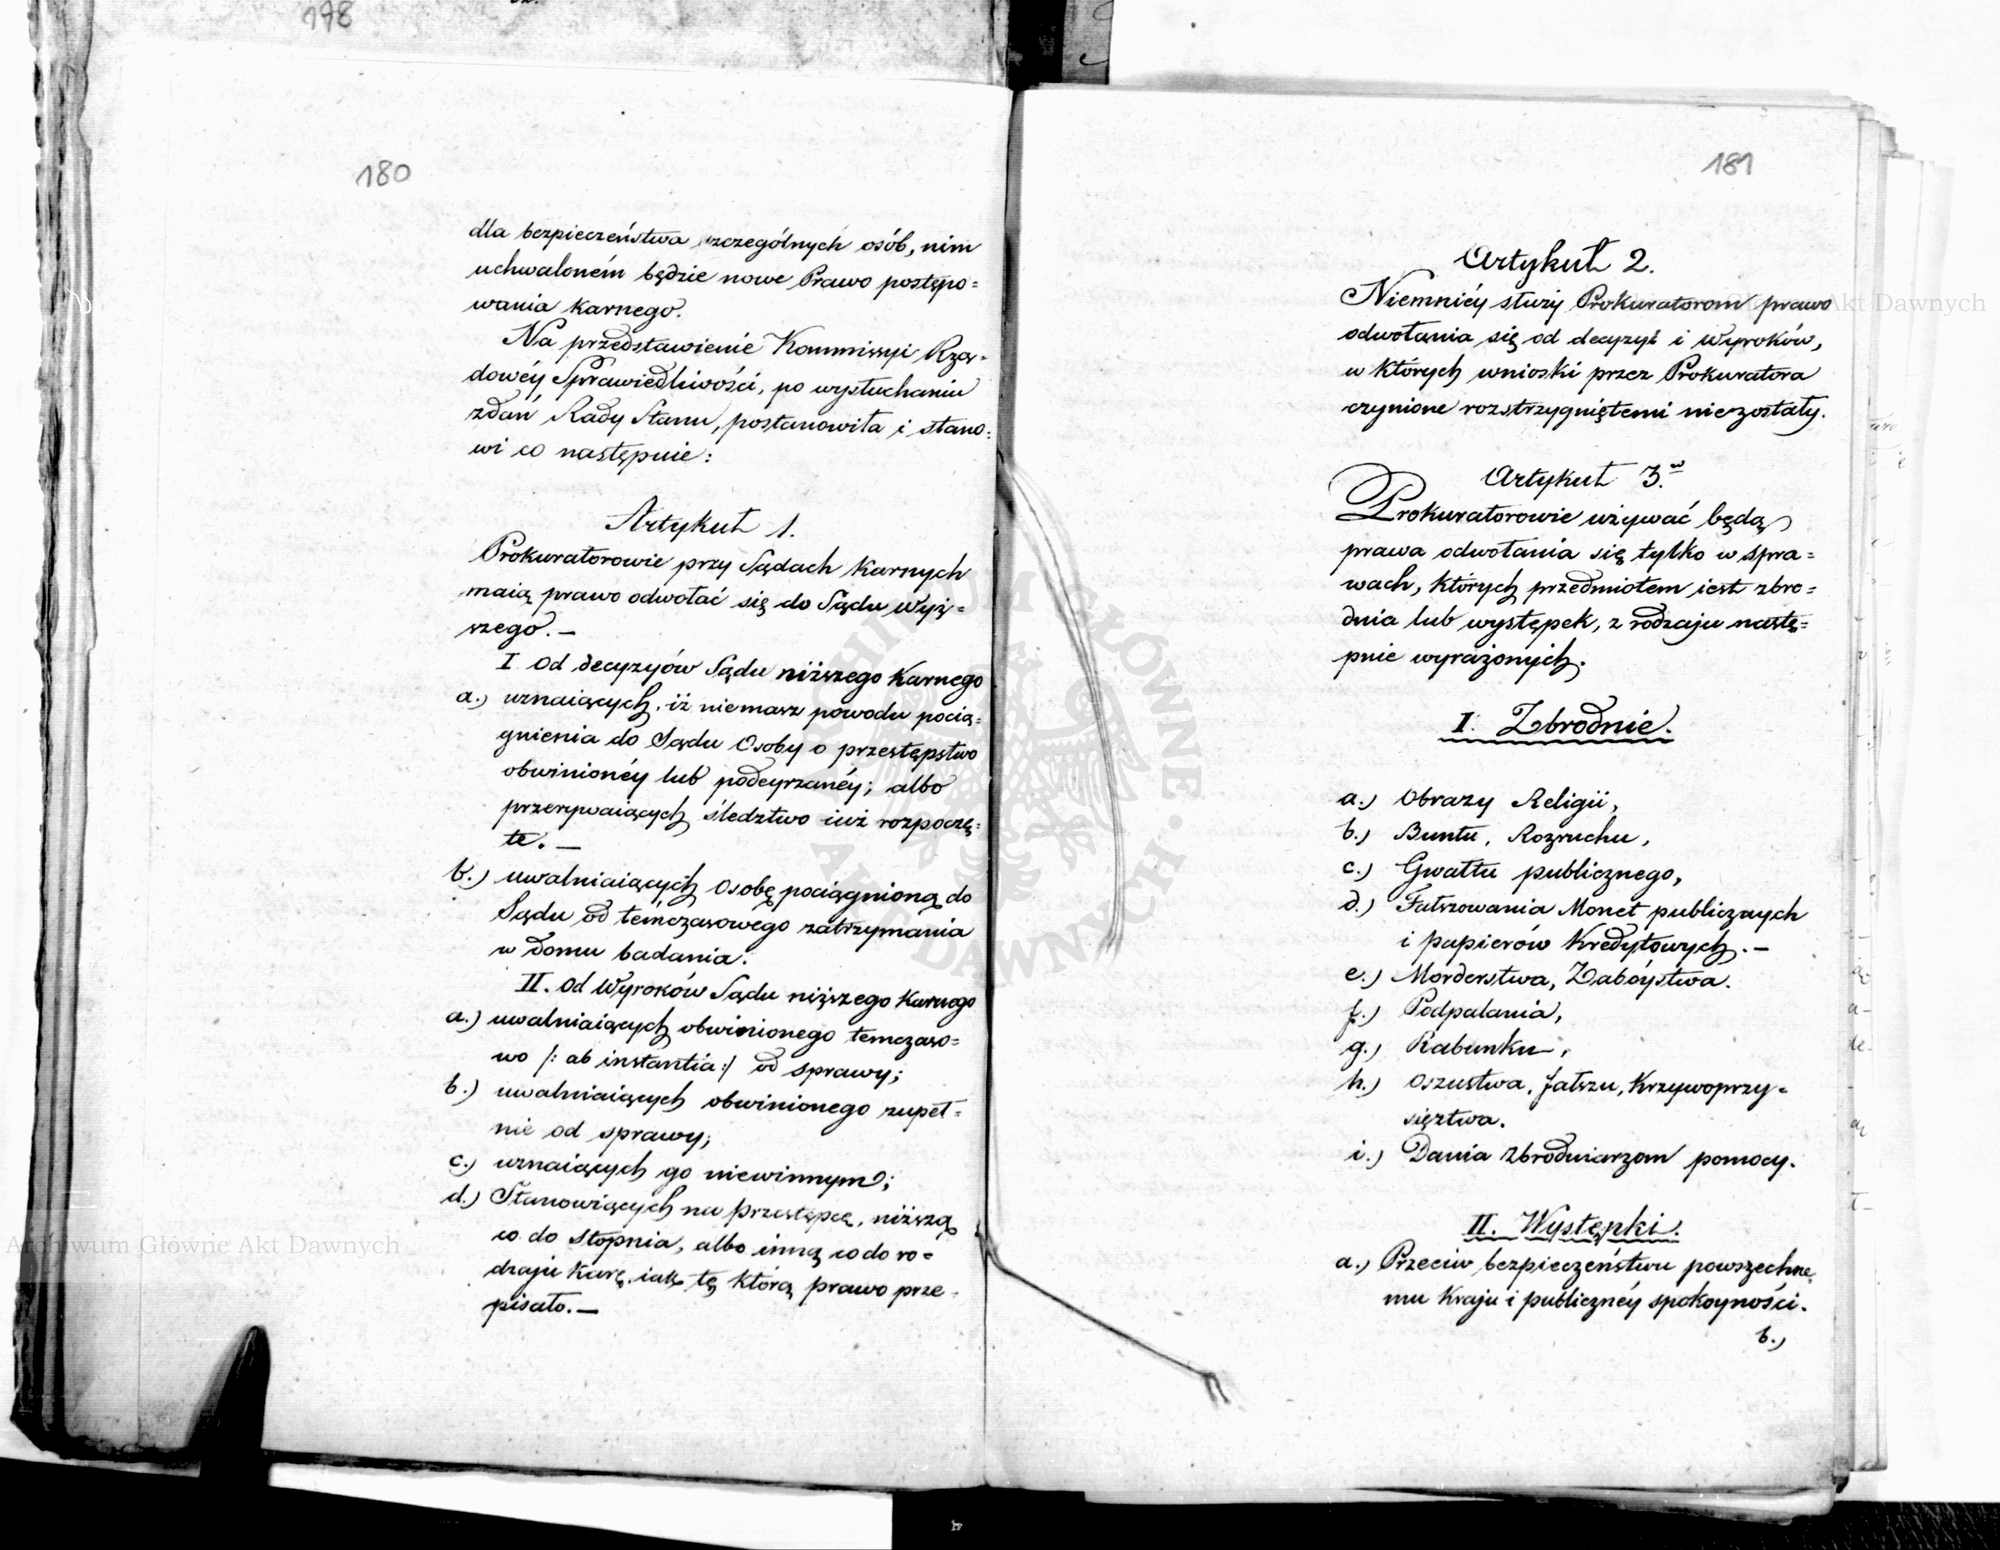 178
180
dla bezpieczeństwa szczególnych osób, nim
uchwaloném będzie nowe Prawo postępo=
wania karnego.
Na przedstawienie Kommissyi Rzą=
dowéy Sprawiedliwości, po wysłuchaniu
zdań Rady Stanu, postanowiła i stano=
wi co następuie:
Artykuł 1.
Prokuratorowie przy Sądach Karnych
maią prawo odwołać się do Sądu Wyż=
szego. —
I. Od decyzyów Sądu niższego Karnego
a.) uznaiących, iż niemasz powodu pocią=
gnienia do Sądu Osoby o przestępstwo
obwinionéy lub podeyrzanéy; albo
przerywaiących śledztwo iuż rozpoczę=
te. —
b.) uwalniaiących Osobę pociągnioną do
Sądu od temczasowego zatrzymania
w domu badania.
II. Od Wyroków Sądu niższego Karnego
a.) uwalniaiących obwinionego temczaso=
wo /: ab instantia :/ od sprawy;
b.) uwalniaiących obwinionego zupeł=
nie od sprawy;
c.) uznaiących go niewinnym;
d.) Stanowiących na przestępcę, niższą
co do stopnia, albo inną co do ro=
dzaju karę, iak tę którą prawo prze=
pisało. —
181
Artykuł 2.
Niemniéy służy Prokuratorom prawo
odwołania się od decyzyi i Wyroków,
w których wnioski przez Prokuratora
czynione rozstrzygniętemi niezostały.
Artykuł 3.
Prokuratorowie używać będą
prawa odwołania się tylko w spra=
wach, których przedmiotem iest zbro=
dnia lub występek, z rodzaju nastę=
pnie wyrażonych.
I. Zbrodnie.
a.) Obrazy Religii,
b.) Buntu, Rozruchu,
c.) Gwałtu publicznego,
d.) Fałszowania Monet publicznych
i papierów Kredytowych. —
e.) Morderstwa, Zabóystwa.
f.) Podpalania,
g.) Rabunku,
h.) Oszustwa, fałszu, Krzywoprzy=
sięztwa.
i.) Dania Zbrodniarzom pomocy.
II. Występki.
a.) Przeciw bezpieczeństwu powszechne
mu Kraju i publicznéy spokoyności.
b.)
Archiwum Główne Akt Dawnych
Akt Dawnych
ARCHIWUM GŁÓWNE · AKT DAWNYCH ·